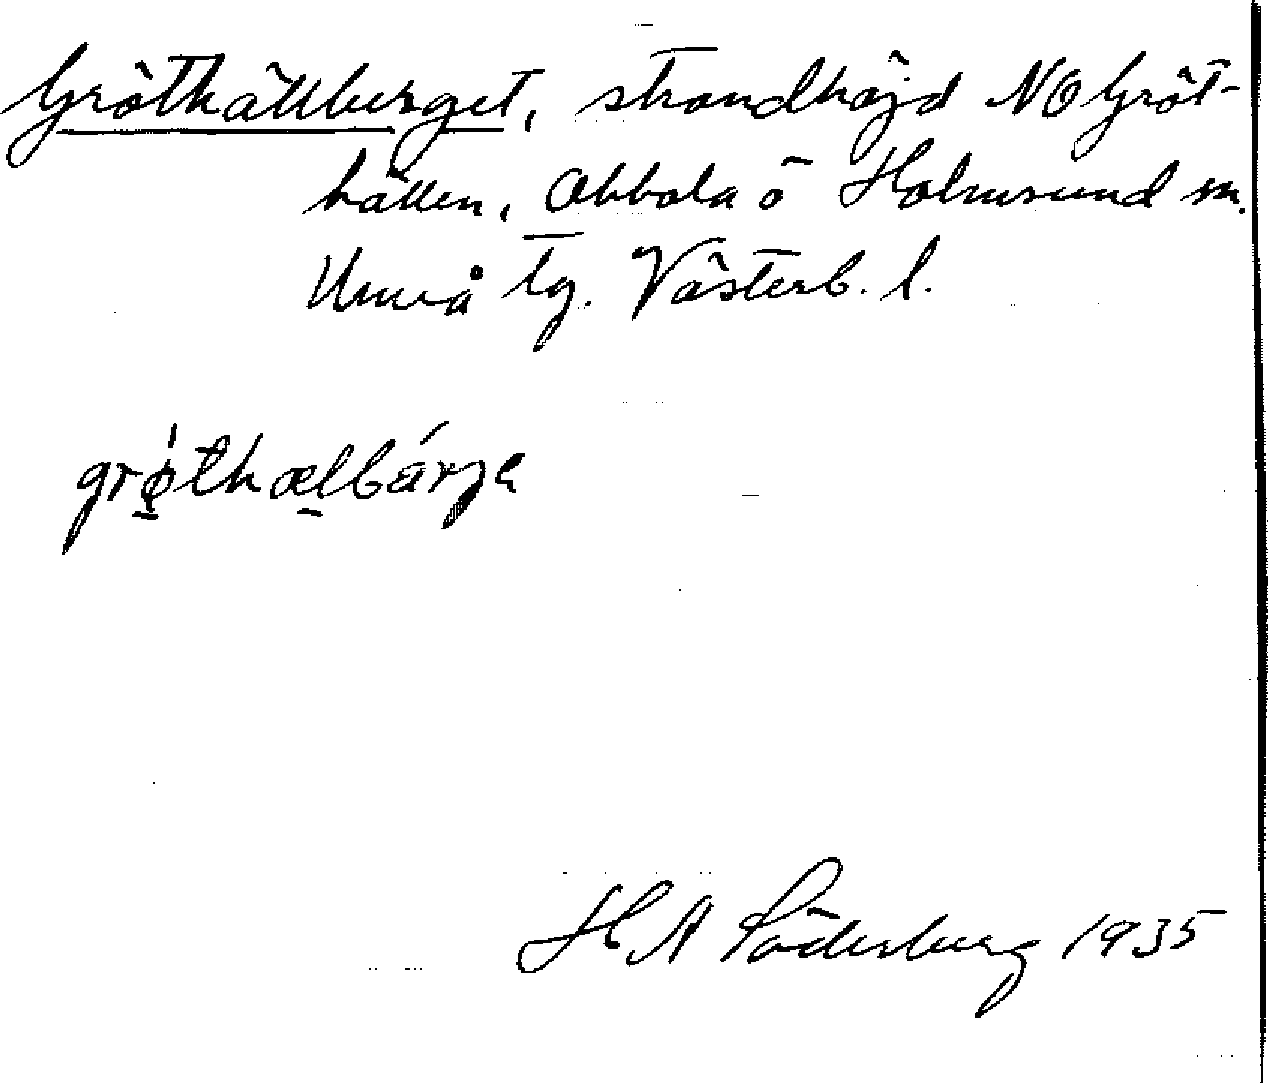 Gröthällberget, strandhöjd NO Gröt-
hällen, Obbola ö Holmsund sn.
Umeå tg. Västerb. l.
grø̀thælbárjɐ
H A Söderberg 1935